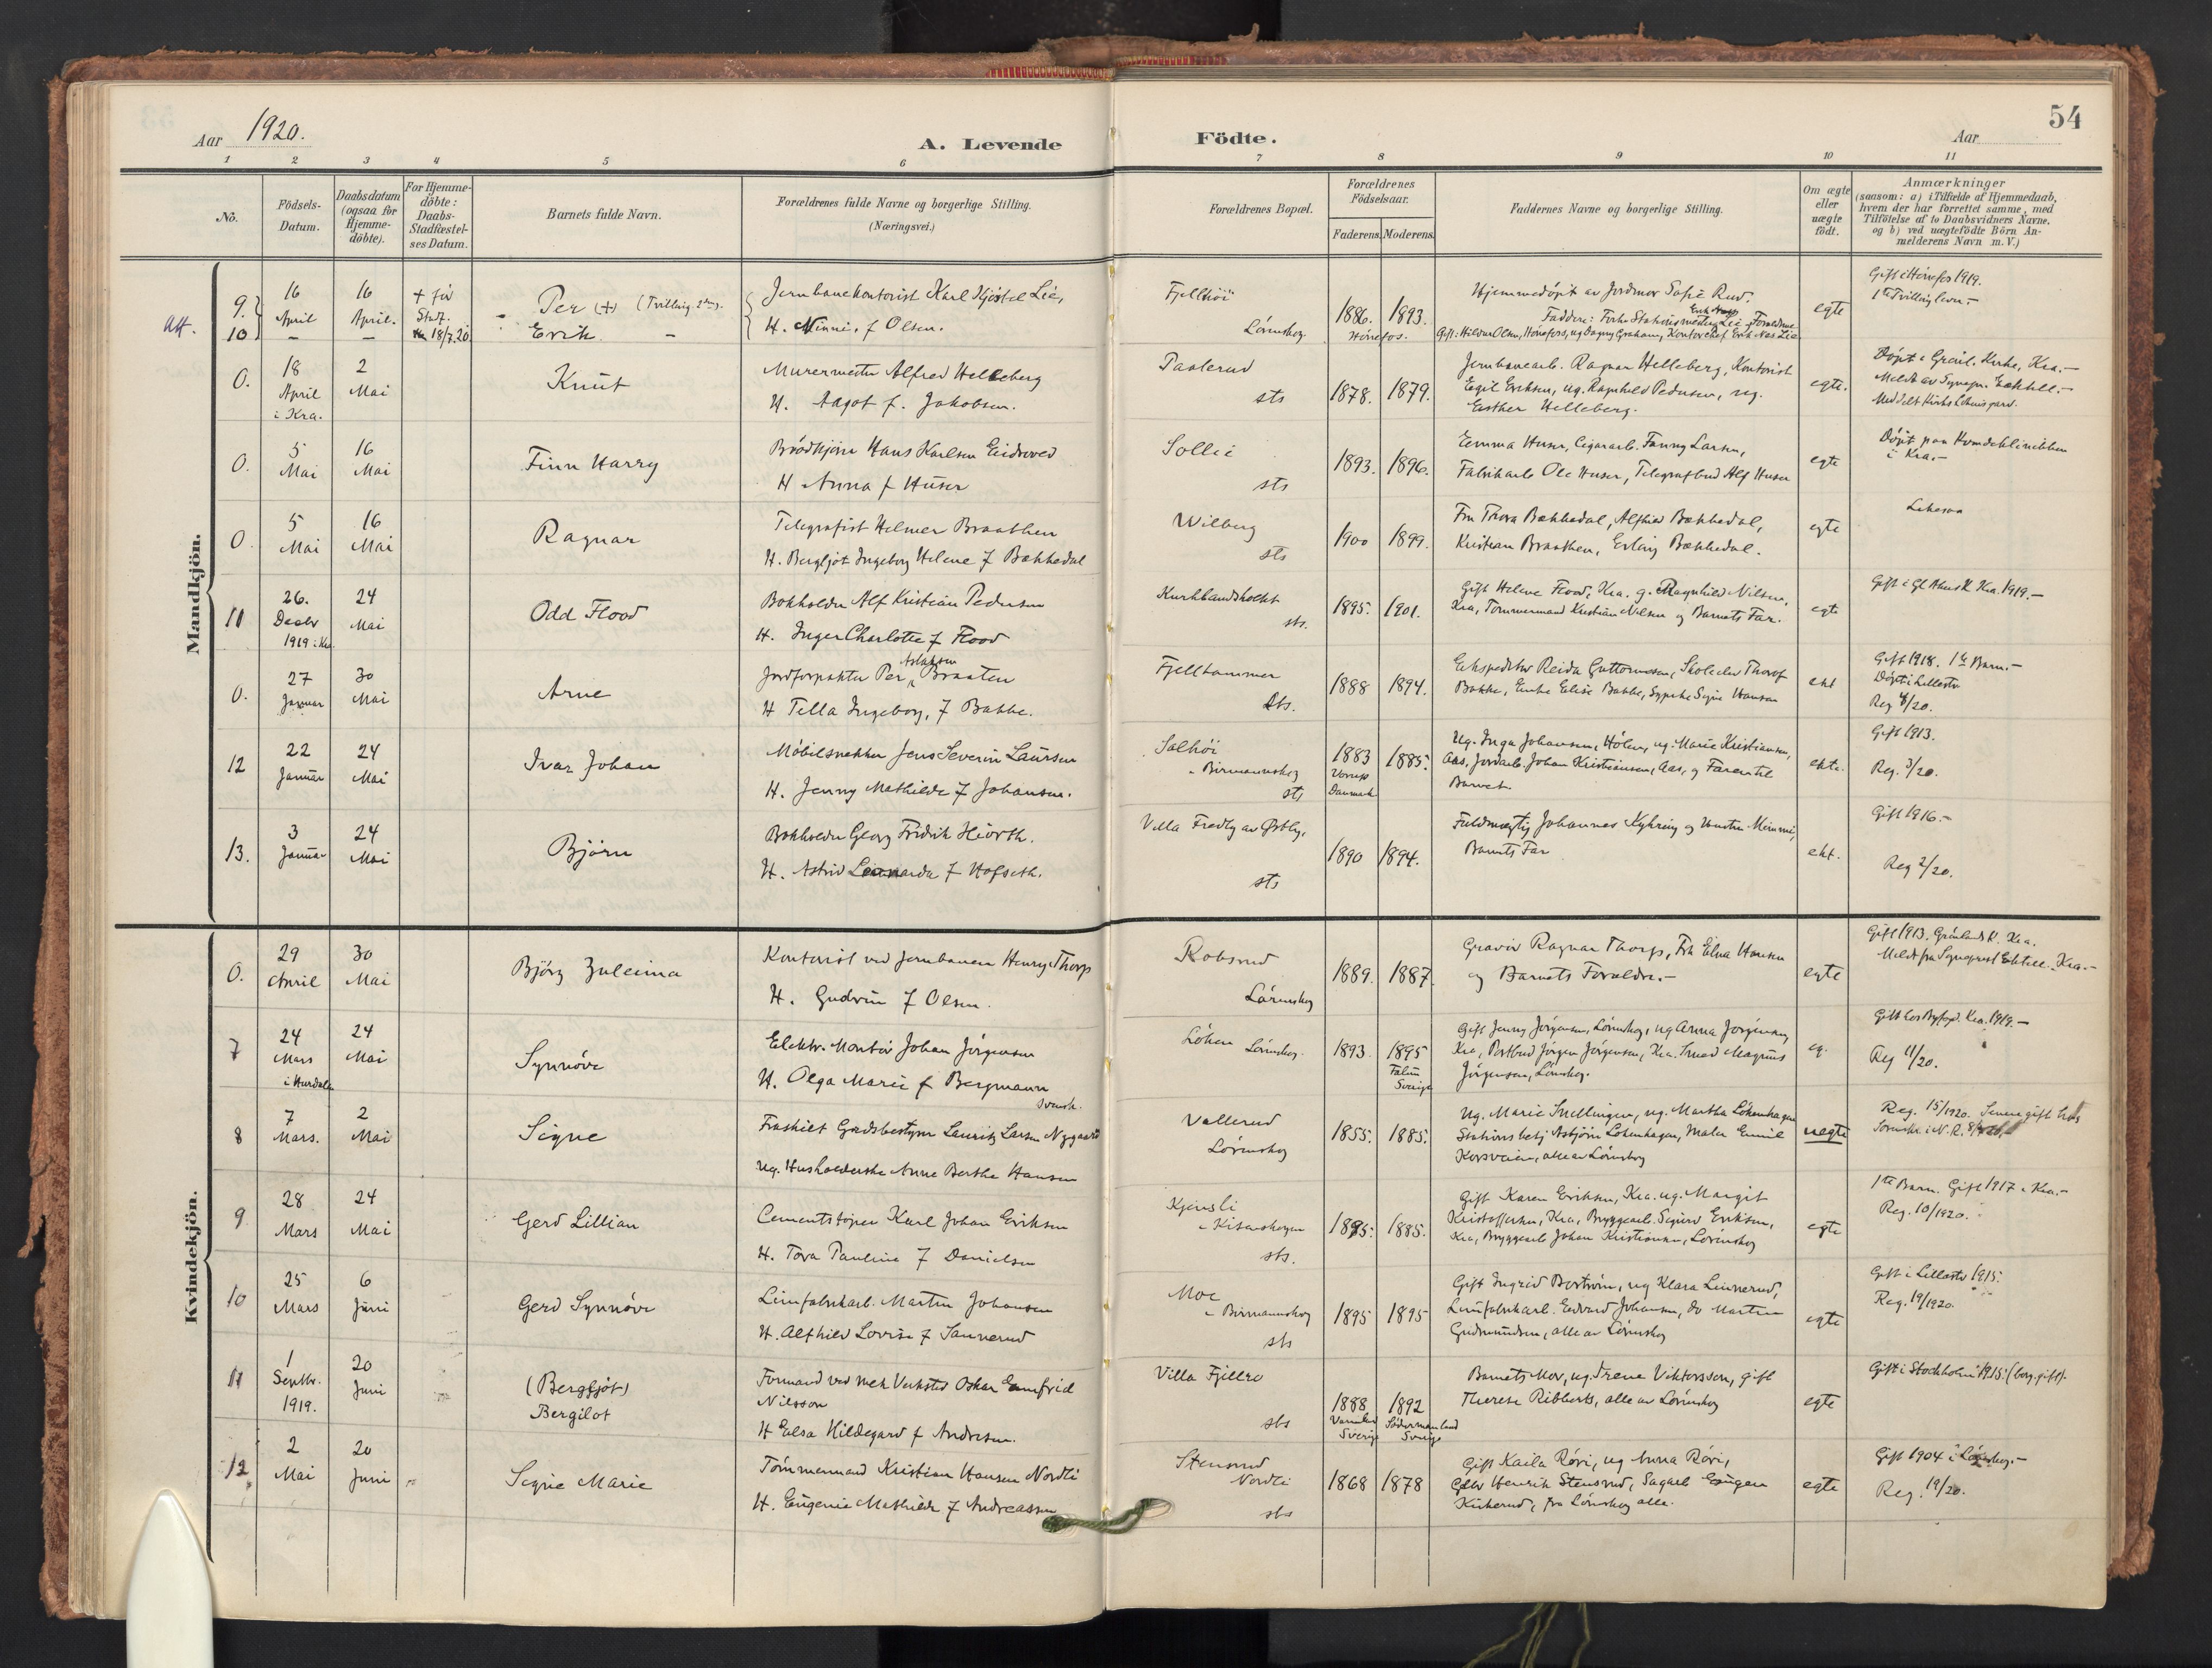 54
Aar 1920.
A. Levende Födte.
Aar
1 2 3 4 5 6 7 8 9 10 11
No.
Födsels-
Datum.
Daabsdatum
(ogsaa for
Hjemme-
döbte).
For Hjemme-
döbte:
Daabs-
Stadfæstel-
ses Datum.
Barnets fulde Navn.
Forældrenes fulde Navne og borgerlige Stilling.
(Næringsvei.)
Forældrenes Bopæl.
Forældrenes
Födselsaar.
Faderens. Moderens.
Faddernes Navne og borgerlige Stilling.
Om ægte
eller
uægte
født.
Anmærkninger
(saasom: a) i Tilfælde af Hjemmedaab,
hvem der har forrettet samme, med
Tilföielse af to Daabsvidners Navne,
og b) ved uægtefödte Börn An-
melderens Navn m. V.)
Mandkjön.
Att.
9.
10
16
April
–
16
April.
–
+ før
Stadf.
18/7.20
Per (+) (Tvilling 2den).
Erik. –
Jernbanekontorist Karl Kjöstel Lie,
H. Minni, f Olsen.
Fjellhöi
Lörenskog.
1886. 1893.
Hönefos.
Hjemmedöpt av Jordmor Sofie Rud.
Faddere: Forh. Stationsmester Lie, Forældrene
Gift: Hildur Olsen, Hönefoss, ug Dagny Graham, Kontorchef Erik Næs Lie
egte
Gift i Hönefos 1919.
1ste Tvilling levn.–
0.
18
April
i Kra.
2
Mai
Knut
Murermester Alfred Helleberg
H. Aagot f. Jakobsen.
Paalerud
sts
1878. 1879.
Jernbanearb. Ragnar Helleberg, Kontorist
Egil Eriksen, ug. Ragnhild Pedersen, ug.
Esther Helleberg.
egte.
Döpt i Grönl. Kirke, Kra.–
0.
5
Mai
16
Mai
Finn Harry
Brödkjörer Hans Karlsen Eidsvold
H Anna f Huser
Sollie
sts
1893. 1896.
Emma Huser, Cigararb. Fanny Larsen,
Fabrikarb Ole Huser, Telegrafbud Alf Huser
egte
Döpt paa Kvindeklinikken
i Kra.–
0.
5
Mai
16
Mai
Ragnar
Telegrafist Helmer Braathen
H. Bergljot Ingeborg Helene f Bækkedal
Wilberg
sts
1900 1899.
Fru Thora Bækkedal, Alfhild Bækkedal,
Kristian Braathen, Erling Bækkedal.
egte
11
26.
Decbr
1919 i Kra.
24
Mai
Odd Flood
Bokholder Alf Kristian Pedersen
H. Inger Charlotte f Flood
Kurlandsholdt
sts.
1895. 1901.
Gift Helene Flood, Kra. g. Ragnhild Nilsen,
Kra, Tömmermand Kristian Nilsen og Barnets Far.
egte
Gift i Gl Akers K Kra. 1919.–
0.
27
Januar
30
Mai
Arne
Jordforpakter Per Aslaksen Braaten
H Tella Ingeborg, f Bakke.
Fjellhammer
sts.
1888 1894.
Ekspeditør Reidar Guttormsen, Skoleelev Thorolf
Bakke, Enke Elise Bakke, Sypike Signe Hansen
ekt
Gift 1918. 1ste Barn.–
Döpt i Lillestr
Reg 4/20.
12
22
Januar
24
Mai
Ivar Johan
Möbelsnekker Jens Severin Laursen
H. Jenny Mathilde f Johansen.
Solhöi
Birmannskog
sts
1883
Vorup
Danmark
1885.
Ug. Inga Johansen, Hölen, ug. Marie Kristiansen,
Aas, Jordarb. Johan Kristiansen, Aas, og Faren til
Barnet
ekte.
Gift 1913.
Reg. 3/20.
13.
3
Januar
24
Mai
Björn
Bokholder Georg Fridrik Hiorth.
H. Astrid Leonarda f Hofseth.
Villa Fredly av Østby,
sts
1890 1894.
Fuldmægtig Johannes Nyhring og Hustru Mimmi,
Barnets Far
ekt.
Gift 1916.–
Reg 2/20.
Kvindekjön.
0.
29
April
30
Mai
Björg Zuleima
Kontorist ved Jernbanen Henry Thorp
H. Gudrun f Olsen.
Robsrud
Lörenskog
1889. 1887.
Gravør Ragnar Thorp, Frk Elna Hansen
og Barnets Forældre.–
egte
Gift 1913. Grönlands K. Kra.
7
24
Mars
i Hurdalen
24
Mai
Synnöve
Elektr. Montör Johan Jörgensen
H. Olga Marie f Bergmann
svensk.
Löken Lörenskog.
1893. 1895
Falun
Sverige
Gift Jenny Jörgensen, Lörenskog, ug Anna Jörgensen,
Kra, Postbud Jörgen Jörgensen, Kra. Smed Magnus
Jörgensen, Lörenskog.
eg.
Gift hos Byfogd. Kra. 1919.–
Reg 11/20.
8
7
Mars.
2
Mai
Signe
Fraskilt Gaardsbestyrer Lauritz Larsen Nygaard
Ug. Husholderske Anne Berthe Hansen
Vallerud
Lörenskog
1855. 1885.
Ug. Marie Snellingen, ug. Martha Lökenhagen
Stationsbetj Asbjörn Lökenhagen, Maler Emil
Korsveien, alle av Lörenskog
uegte
Reg. 15/1920.
9
28
Mars
24
Mai
Gerd Lillian
Cementstöper Karl Johan Eriksen
H. Tora Pauline f Danielsen
Kjensli
sts.
1895. 1885.
Gift Karen Eriksen, Kra. ug. Margit
Kristoffersen, Kra, Bryggearb. Sigurd Eriksen,
Kra, Bryggearb Johan Kristiansen, Lörenskog
egte
1ste Barn. Gift 1917 i Kra.–
Reg. 10/1920.
10
25
Mars
6
Juni
Gerd Synnöve
Limfabrikarb. Martin Johansen
H. Alfhild Lovise f Sannerud
Moe
Birmannskog
sts
1895 1895
Gift Ingrid Boström, ug Klara Linnerud,
Limfabrikarb. Edvard Johansen, do Martin
Gudmundsen, alle av Lörenskog
egte
Gift i Lillestr 1915.
Reg. 19/1920.
11
1
Septbr.
1919.
20
Juni
(Bergljot)
Bergilot
Formand ved mek Verksted Oskar Ernfrid
Nilsson
H Elsa Hildegard f Andresen.
Villa Fjellro
sts
1888
Sverige
1892
Södermanland
Sverige
Barnets Mor, ug. Irene Viktorsson, gift
Therese Ribberts, alle av Lörenskog
egte
Gift i Stockholm 1915. (borg. gift).
12
2
Mai
20
Juni
Signe Marie
Tömmermand Kristian Hansen Nordli
H. Eugenie Mathilde f Andreassen
Stensrud
Nordli
sts
1868 1878
Gift Kaila Röri, ug Anna Röri,
Henrik Stensrud, Sagarb Eugen
Kirkerud, fra Lörenskog alle.
egte
Gift 1904 i Lörenskog.–
Reg. 19/20.